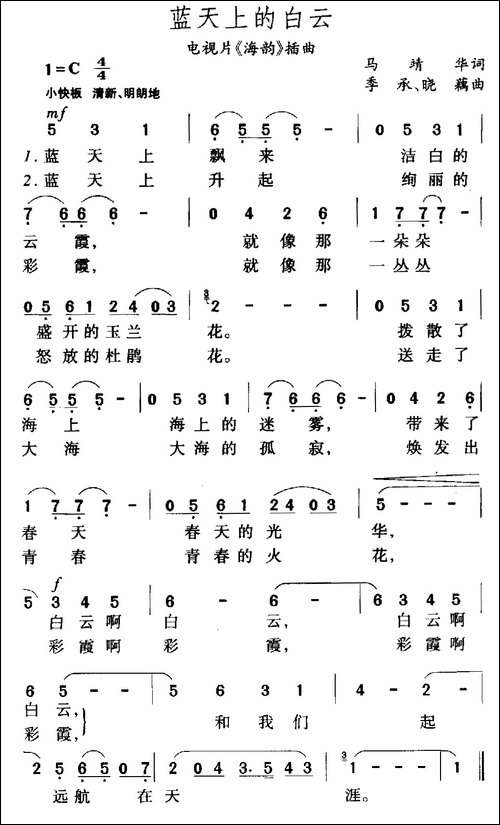 蓝天上的白云
电视片《海韵》插曲
1=C 4/4
马靖华词
季承、晓藕曲
小快板 清新、明朗地
mf
5 3 1 | 6 5 5 5 - | 0 5 3 1
1.蓝天上 飘来 洁白的
2.蓝天上 升起 绚丽的
7 6 6 6 - | 0 4 2 6 | 1 7 7 7 -
云霞, 就像那 一朵朵
彩霞, 就像那 一丛丛
0 5 6 1 2 4 0 3 | 3 2 - - - | 0 5 3 1
盛开的玉兰 花。 拨散了
怒放的杜鹃 花。 送走了
6 5 5 5 - | 0 5 3 1 | 7 6 6 6 - | 0 4 2 6
海上 海上的迷雾, 带来了
大海 大海的孤寂, 焕发出
1 7 7 7 - | 0 5 6 1 2 4 0 3 | 5 - - -
春天 春天的光 华,
青春 青春的火 花,
f
5 3 4 5 | 6 - - 6 - - - | 6 3 4 5
白云啊 白云, 白云啊
彩霞啊 彩霞, 彩霞啊
6 5 - - | 5 6 3 1 | 4 - 2 -
白云, 和我们 起
彩霞,
2 5 6 5 0 7 | 2 0 4 3·5 4 3 | 3 1 - - - | 1 - - 1 0
远航 在天 涯。